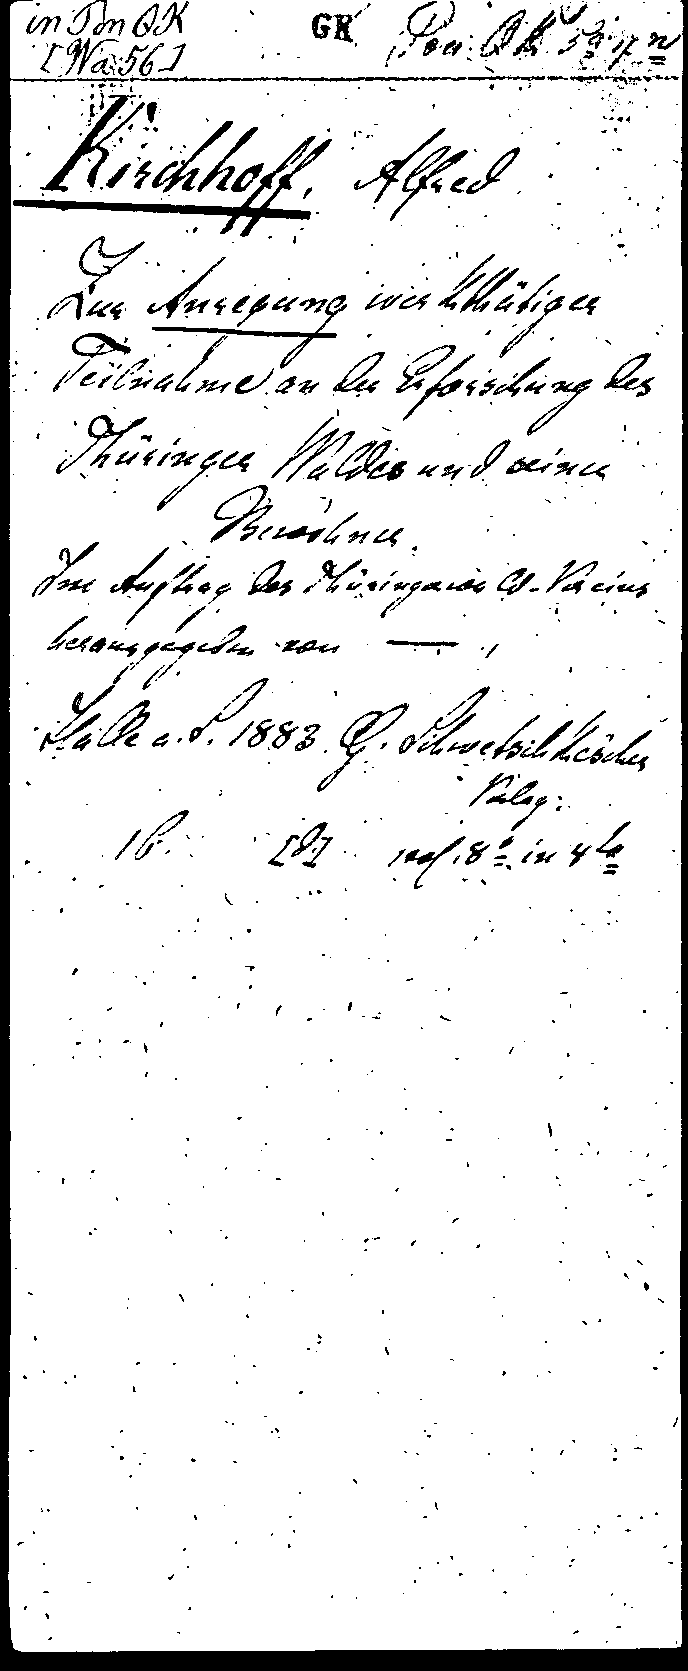 in Pon QK GK Pon QK
[Wa 56]
Kirchhoff, Alfred
Zur Anregung werkthätiger
Teilnahme an der Erforschung des
Thüringer Waldes und seiner
Bewohner.
Im Auftrag des Thüringerw W.-Vereins
herausgegeben von — ,
Halle a. S. 1883. G. Schwetschke'scher
Verlag.
8° in 4to